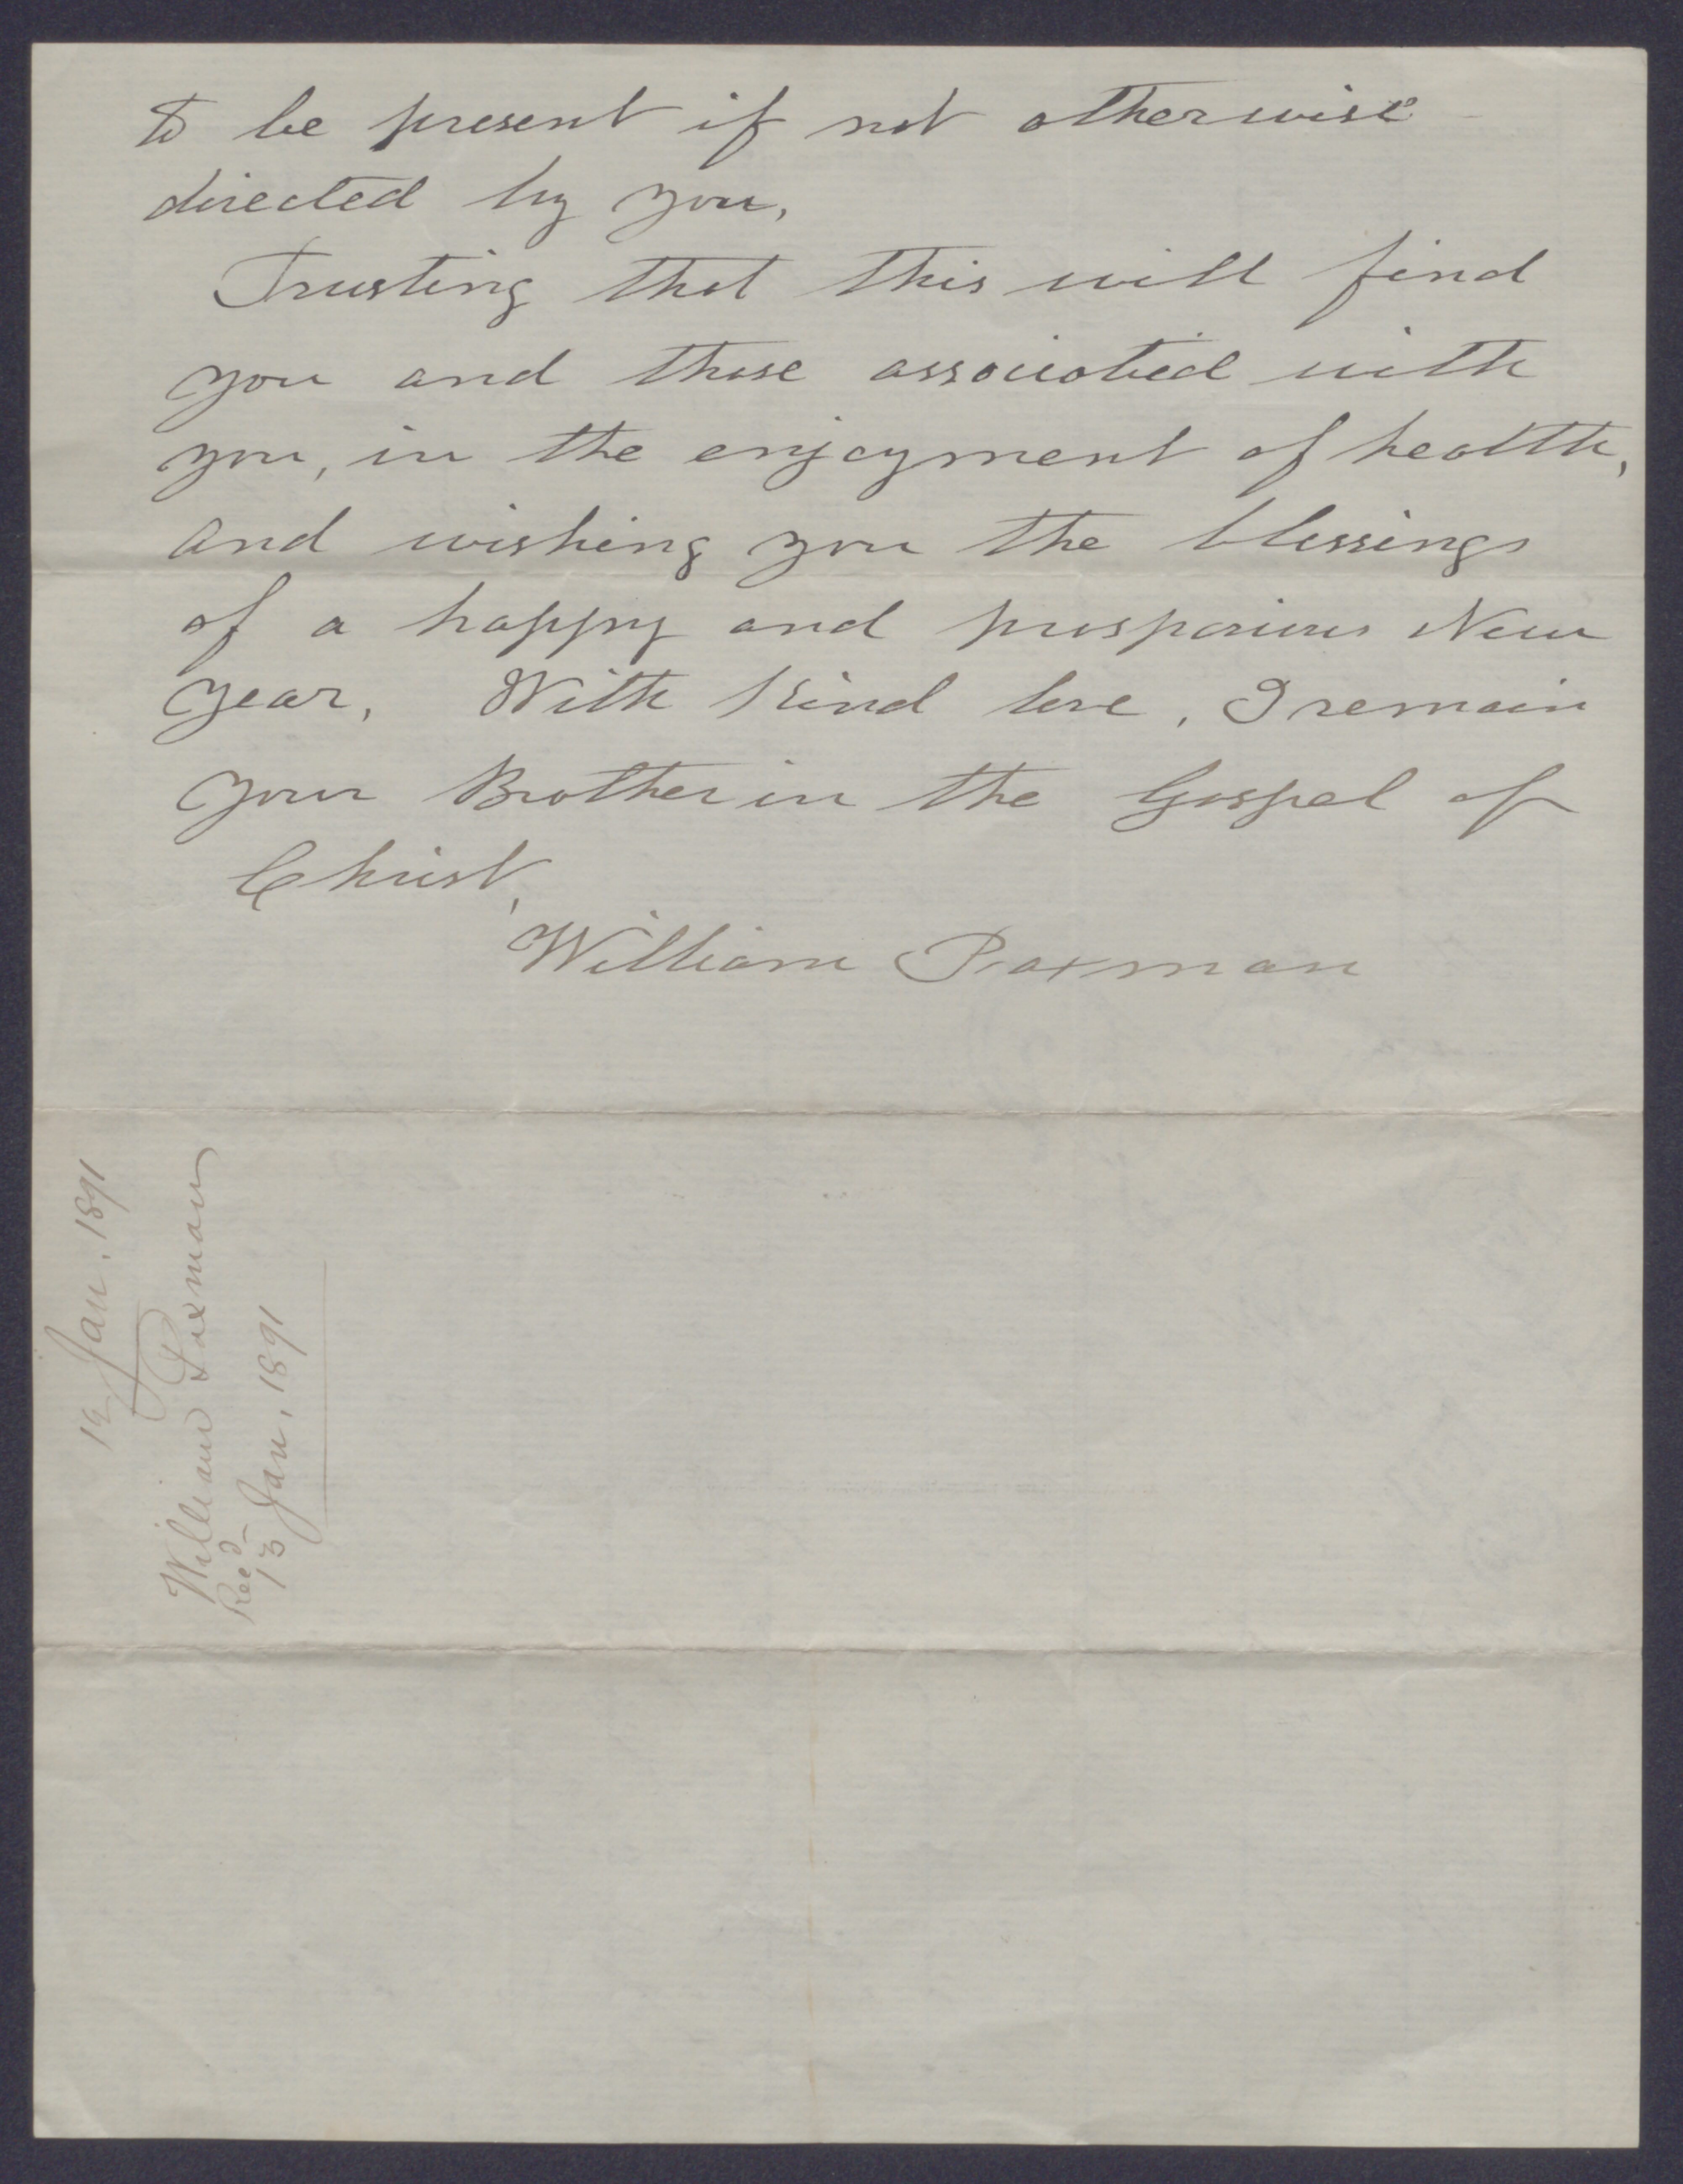 to be present if not otherwise
directed by you,
Trusting that this will find
you and those associated with
you, in the enjoyment of health,
and wishing you the blessings
of a happy and prosperious New
year, With kind love, I remain
your Brother in the Gospel of
Christ,
William Paxman
12 Jan, 1891
William Paxman
Recd
13 Jan, 1891